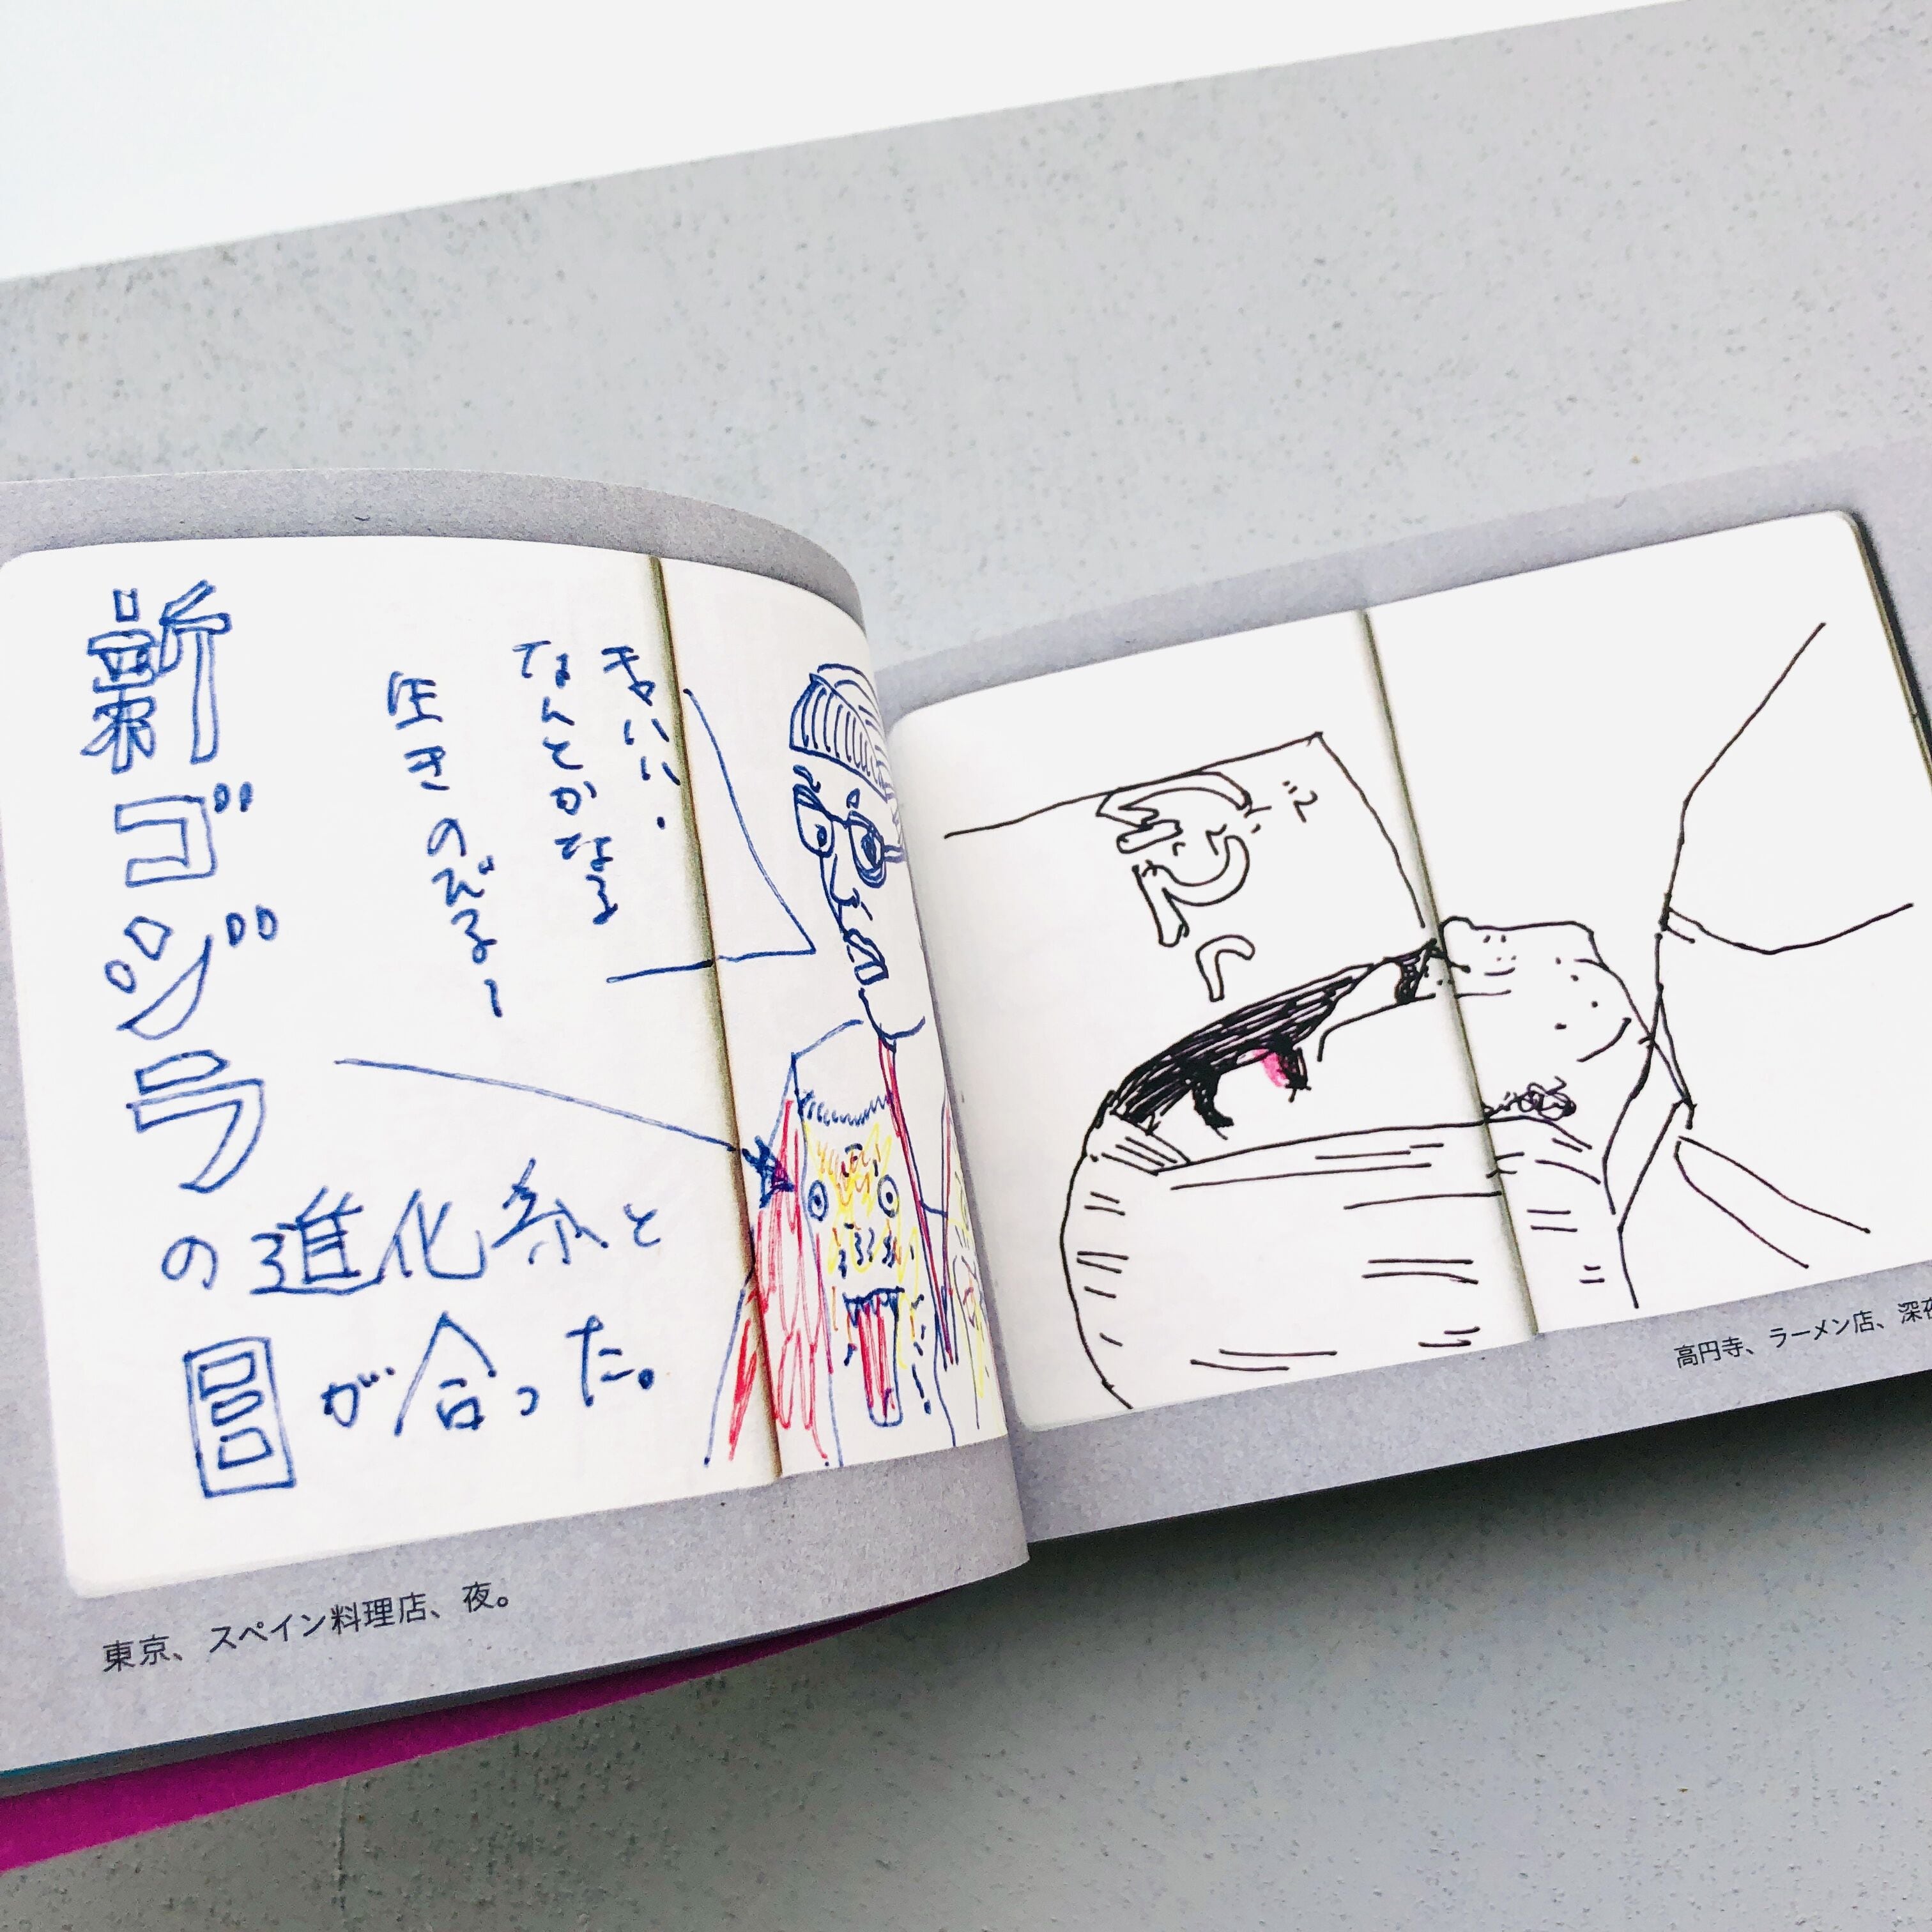 まぁいい、
なんとかなる
生きのびるー
新ゴジラ
の進化系と
目が合った。
東京、スペイン料理店、夜。
高円寺、ラーメン店、深夜